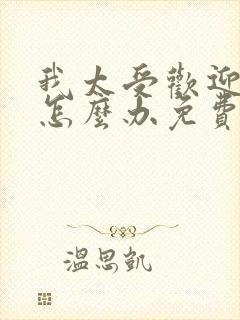 我太受歡迎
怎麼办免費
溫思凱